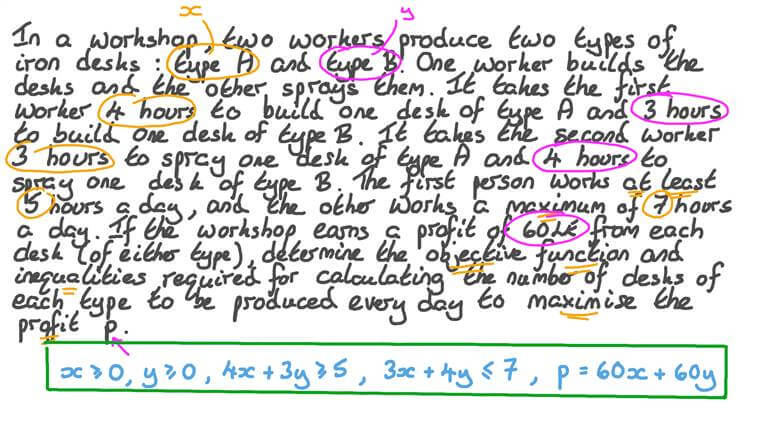 x
y
In a workshop, two workers produce two types of
iron desks : type A and type B. One worker builds the
desks and the other sprays them. It takes the first
worker 4 hours to build one desk of type A and 3 hours
to build one desk of type B. It takes the second worker
3 hours to spray one desk of type A and 4 hours to
spray one desk of type B. The first person works at least
5 hours a day, and the other works a maximum of 7 hours
a day. If the workshop earns a profit of 60LE from each
desk (of either type), determine the objective function and
inequalities required for calculating the number of desks of
each type to be produced every day to maximise the
profit p.
x ≥ 0, y ≥ 0, 4x + 3y ≥ 5, 3x + 4y ≤ 7, p = 60x + 60y